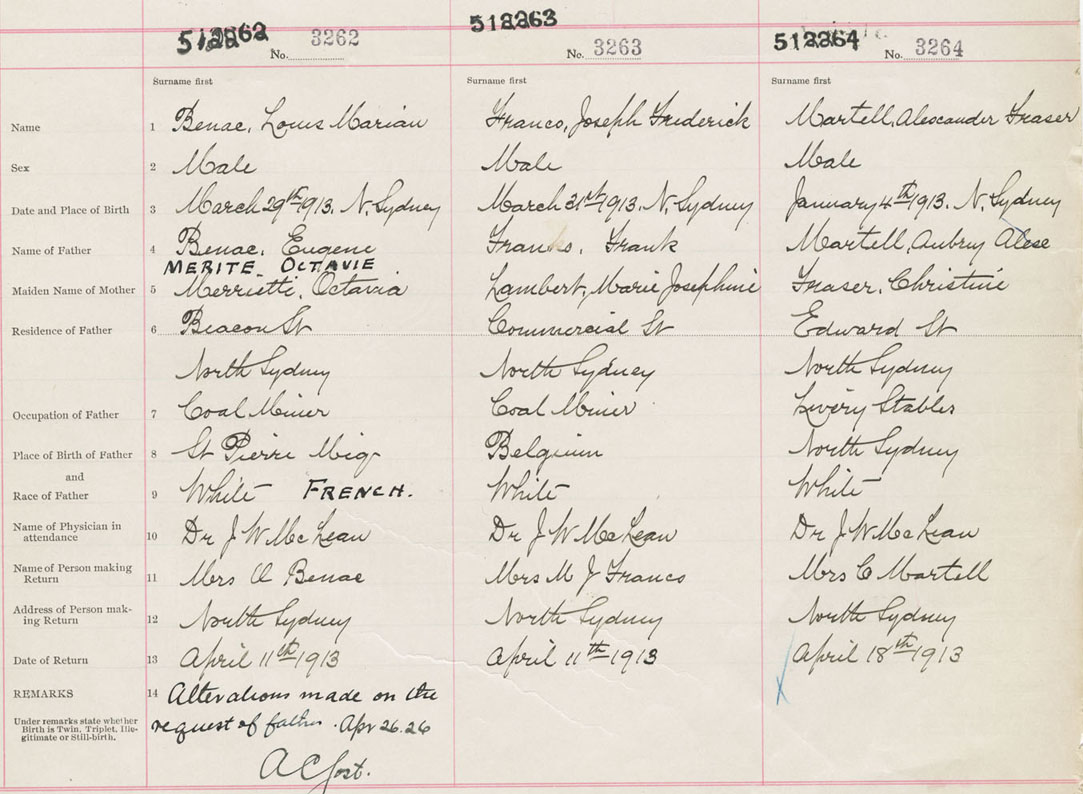 512263
512262 No. 3262 No. 3263 512264 No. 3264
Surname first Surname first Surname first
Name 1 Benac, Louis Marian Franco, Joseph Frederick Martell, Alexander Fraser
Sex 2 Male Male Male
Date and Place of Birth 3 March 29th 1913. N. Sydney March 31st 1913. N. Sydney January 4th 1913. N. Sydney
Name of Father 4 Benac, Eugene Frank Martell, Aubry
MERITE OCTAVIE
Maiden Name of Mother 5 Merrietti, Octavia Lambert, Marie Josephine Fraser, Christine
Residence of Father 6 Beacon St Commercial St Edward St
North Sydney North Sydney North Sydney
Occupation of Father 7 Coal Miner Coal Miner Livery Stabler
Place of Birth of Father 8 St Pierre Miq Belgium North Sydney
and
Race of Father 9 White FRENCH. White White
Name of Physician in
attendance 10 Dr J W McLean Dr J W McLean Dr J W McLean
Name of Person making
Return 11 Mrs O Benac Mrs M J Franco Mrs C Martell
Address of Person mak-
ing Return 12 North Sydney North Sydney North Sydney
Date of Return 13 April 11th 1913 April 11th 1913 April 18th 1913
REMARKS 14 Alterations made on the
Under remarks state whether
Birth is Twin, Triplet, Ille-
gitimate or Still-birth.
request of father. Apr 26.26
A C Jost.